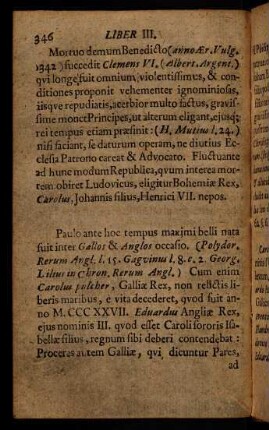 346 LIBER III.
Mortuo demum Benedicto (anno Ær. Vulg.
1342) succedit Clemens VI. (Albert. Argent.)
qvi longe fuit omnium violentissimus, & con-
ditiones proponit vehementer ignominiosas,
iisqve repudiatis, acerbior multo factus, gravis-
sime monet Principes, ut alterum eligant, ejusq;
rei tempus etiam præfinit: (H. Mutius l. 24.)
nisi faciant, se daturum operam, ne diutius Ec-
clesia Patrono careat & Advocato. Fluctuante
ad hunc modum Republica, qvum interea mor-
tem obiret Ludovicus, eligitur Bohemiæ Rex,
Carolus, Johannis filius, Henrici VII. nepos.
Paulo ante hoc tempus maximi belli nata
fuit inter Gallos & Anglos occasio. (Polydor.
Rerum Angl. l. 15. Gagvinus l. 8. c. 2. Georg.
Lilius in Chron. Rerum Angl.) Cum enim
Carolus pulcher, Galliæ Rex, non relictis li-
beris maribus, e vita decederet, qvod fuit an-
no M. CCC XXVII. Eduardus Angliæ Rex,
ejus nominis III. qvod esset Caroli sororis Isa-
bellæ filius, regnum sibi deberi contendebat:
Proceres autem Galliæ, qvi dicuntur Pares,
ad